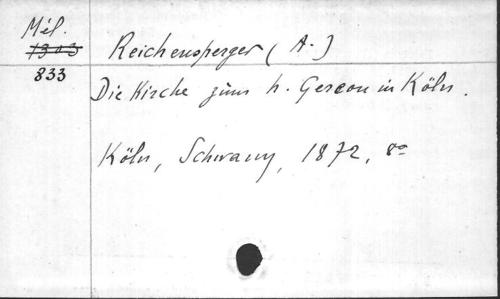 Mél.
1303
833
Reichensperger (A.)
Die Kirche zum h. Gereon in Köln.
Köln, Schwann, 1872, 8º